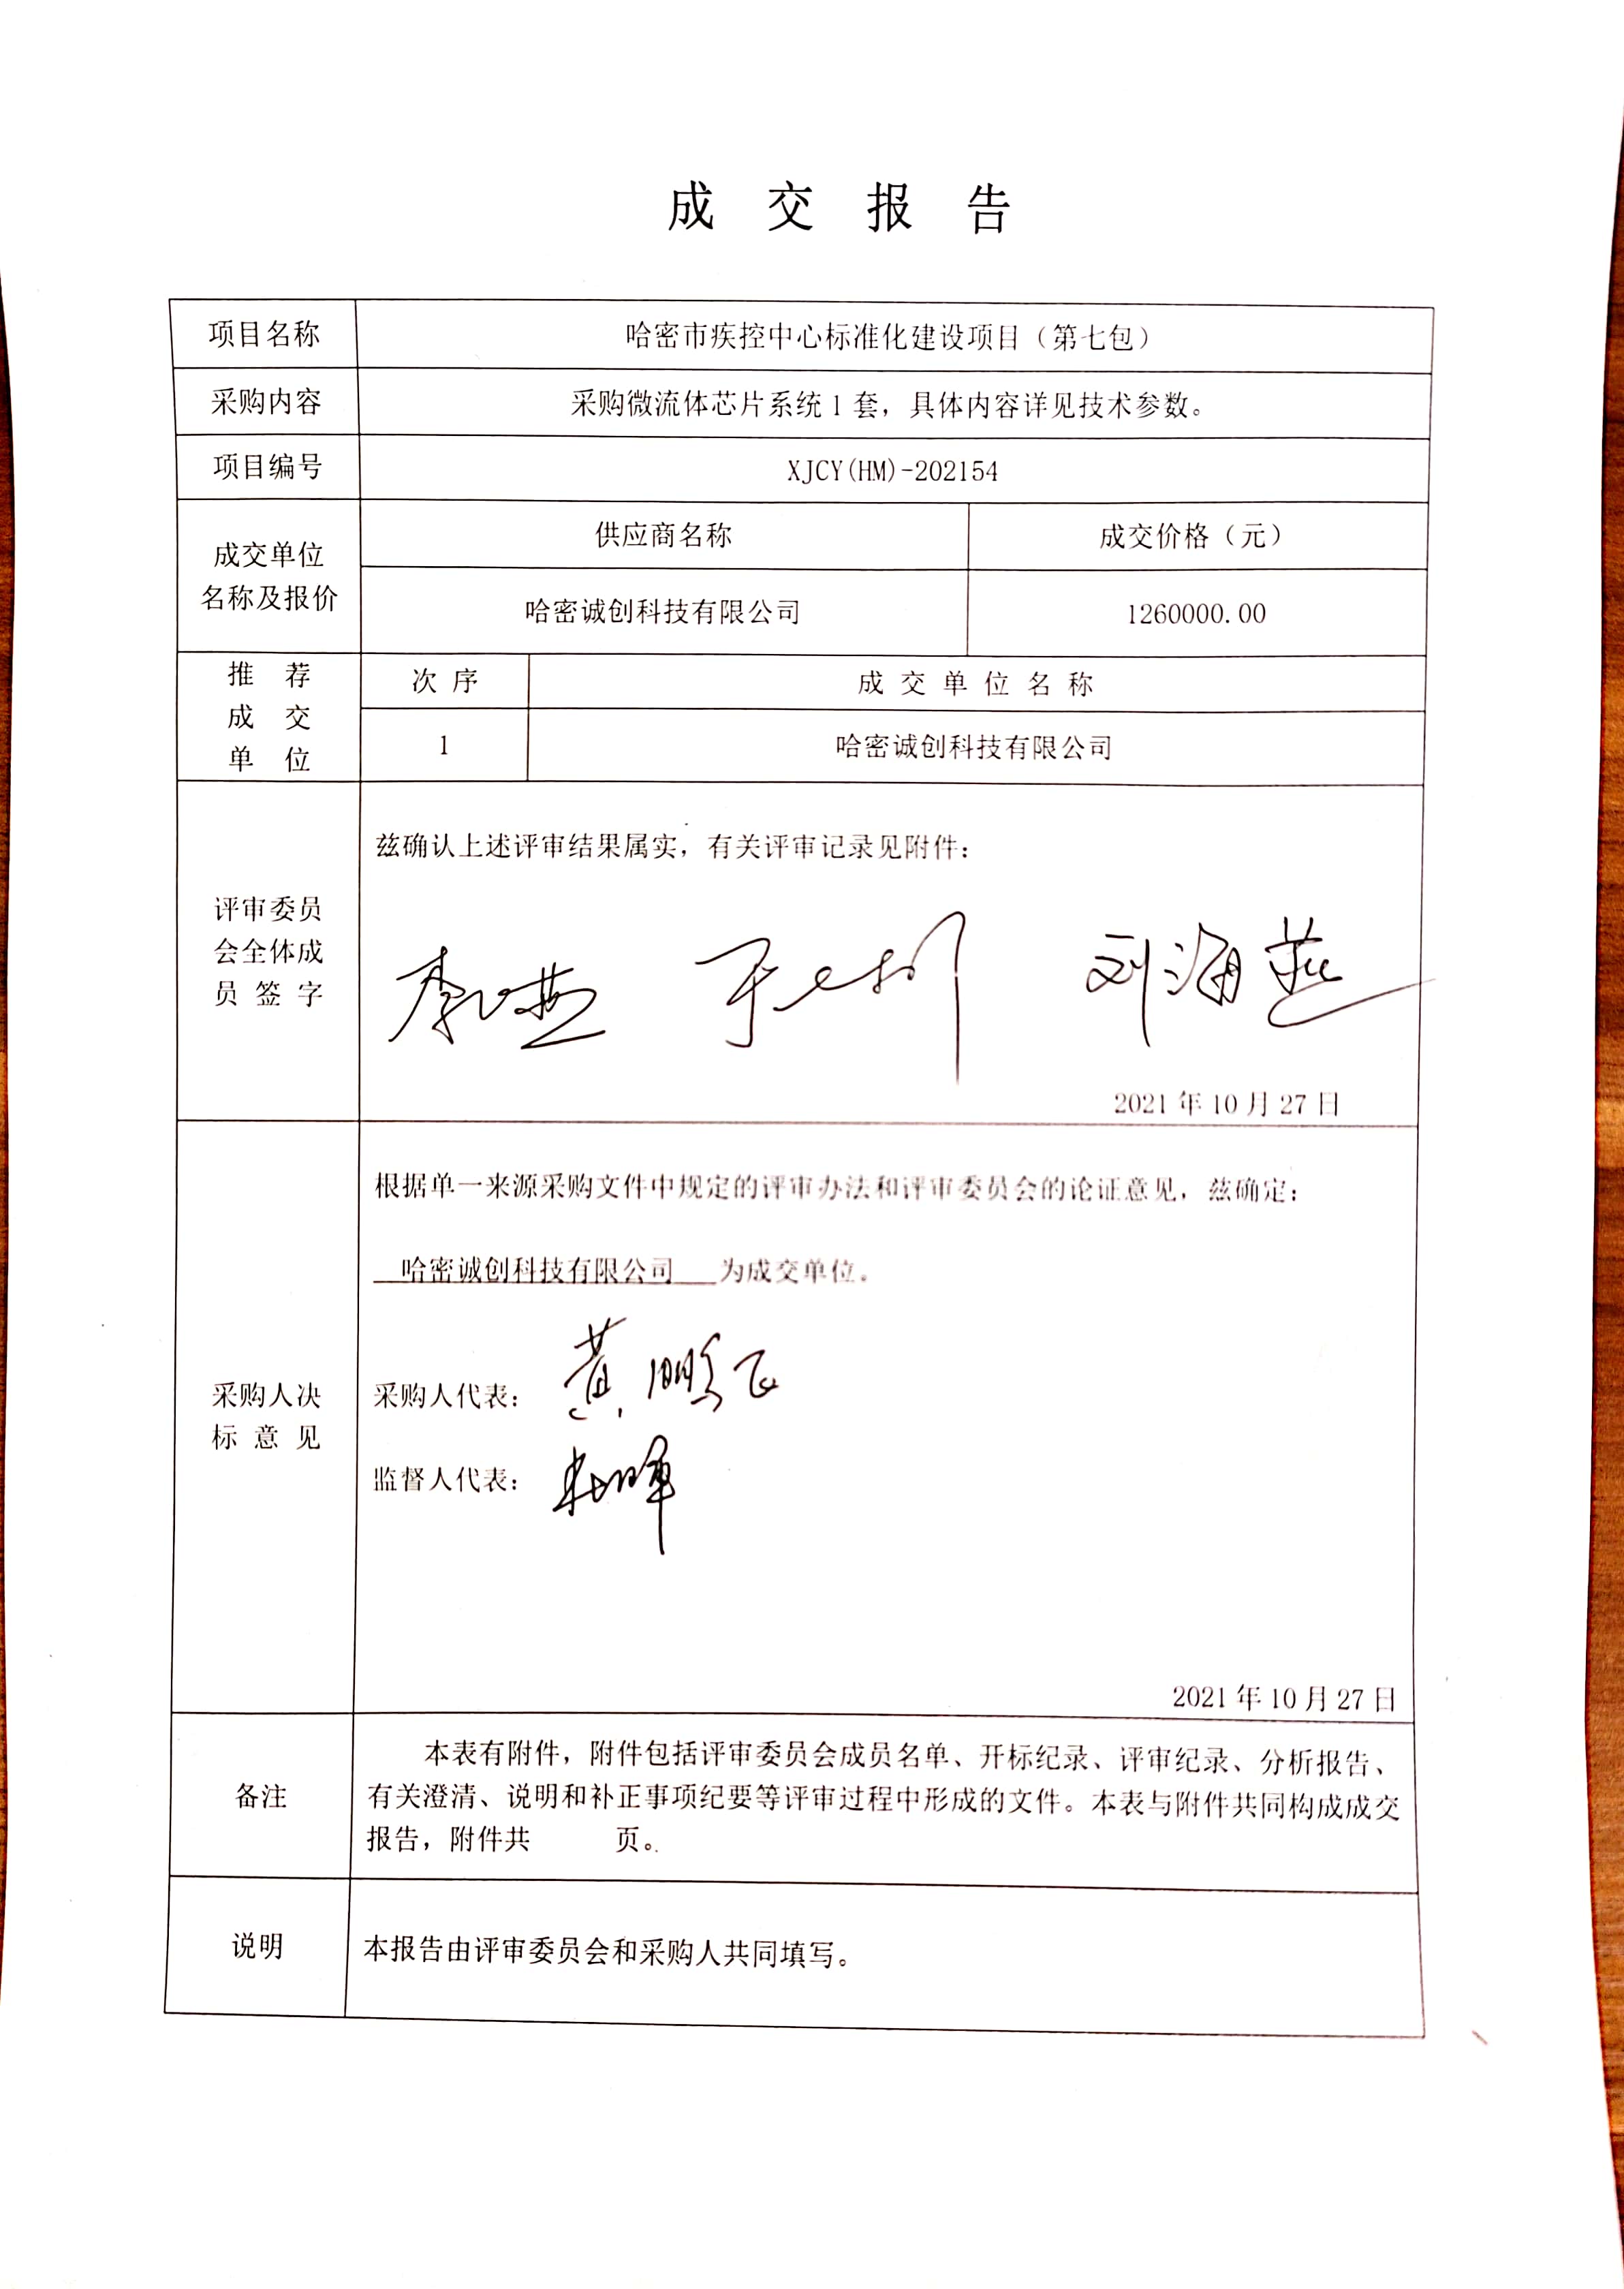 成交报告
项目名称 哈密市疾控中心标准化建设项目（第七包）
采购内容 采购微流体芯片系统1套，具体内容详见技术参数。
项目编号 XJCY(HM)-202154
成交单位
名称及报价
供应商名称 成交价格（元）
哈密诚创科技有限公司 1260000.00
推荐
成交
单位
次序 成交单位名称
1 哈密诚创科技有限公司
评审委员
会全体成
员签字
兹确认上述评审结果属实，有关评审记录见附件：
刘海燕
2021年10月27日
采购人决
标意见
根据单一来源采购文件中规定的评审办法和评审委员会的论证意见，兹确定：
哈密诚创科技有限公司 为成交单位。
采购人代表： 黄鹏飞
监督人代表：
2021年10月27日
备注
本表有附件，附件包括评审委员会成员名单、开标纪录、评审纪录、分析报告、
有关澄清、说明和补正事项纪要等评审过程中形成的文件。本表与附件共同构成成交
报告，附件共 页。
说明 本报告由评审委员会和采购人共同填写。